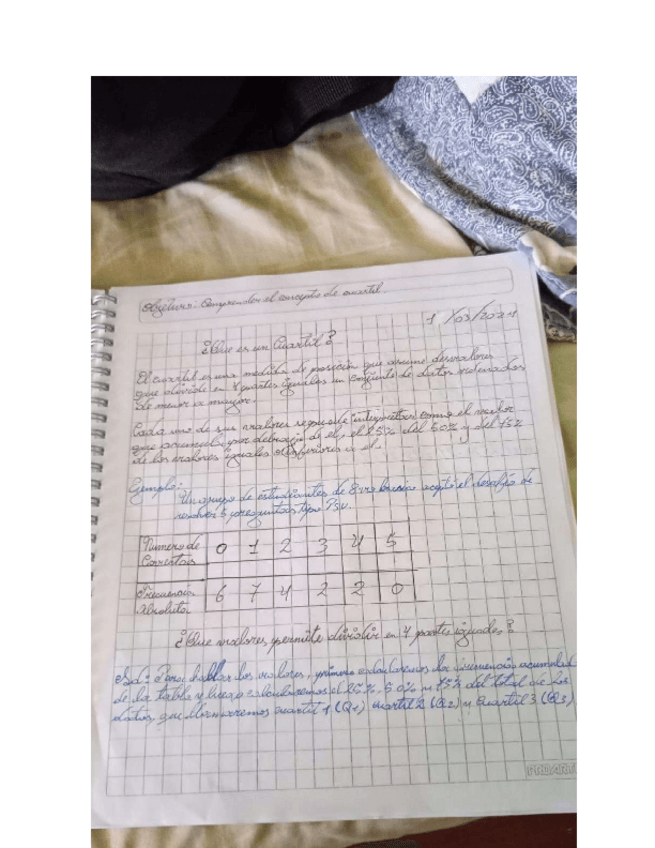 Objetivo: Comprender el concepto de cuartil.
1 /03/2021
¿Que es un Cuartil?
El cuartil es una medida de posición que asume
que divide en 4 partes iguales un conjunto de datos ordenados
de menor a mayor.
Cada uno de sus valores se puede interpretar como el valor
que acumula por debajo de el, el 25% del 50% y del 75%
de los valores iguales o inferiores a el.
Ejemplo:
Un grupo de estudiantes de 8vo básico aceptó el desafío de
resolver 5 preguntas tipo PSU.
Numero de 0 1 2 3 4 5
Correctas
Frecuencia 6 7 4 2 2 0
Absoluta
¿Que valores permite dividir en 4 partes iguales?
Sol: Para hallar los valores, primero calcularemos la frecuencia acumulad
de la tabla y luego calcularemos el 25%, 50% y 75% del total de los
datos, que llamaremos cuartil 1 (Q1) cuartil 2 (Q2) y cuartil 3 (Q3)